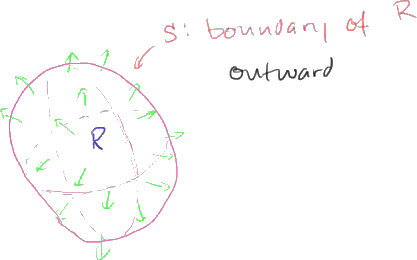 S: boundary of R
outward
R